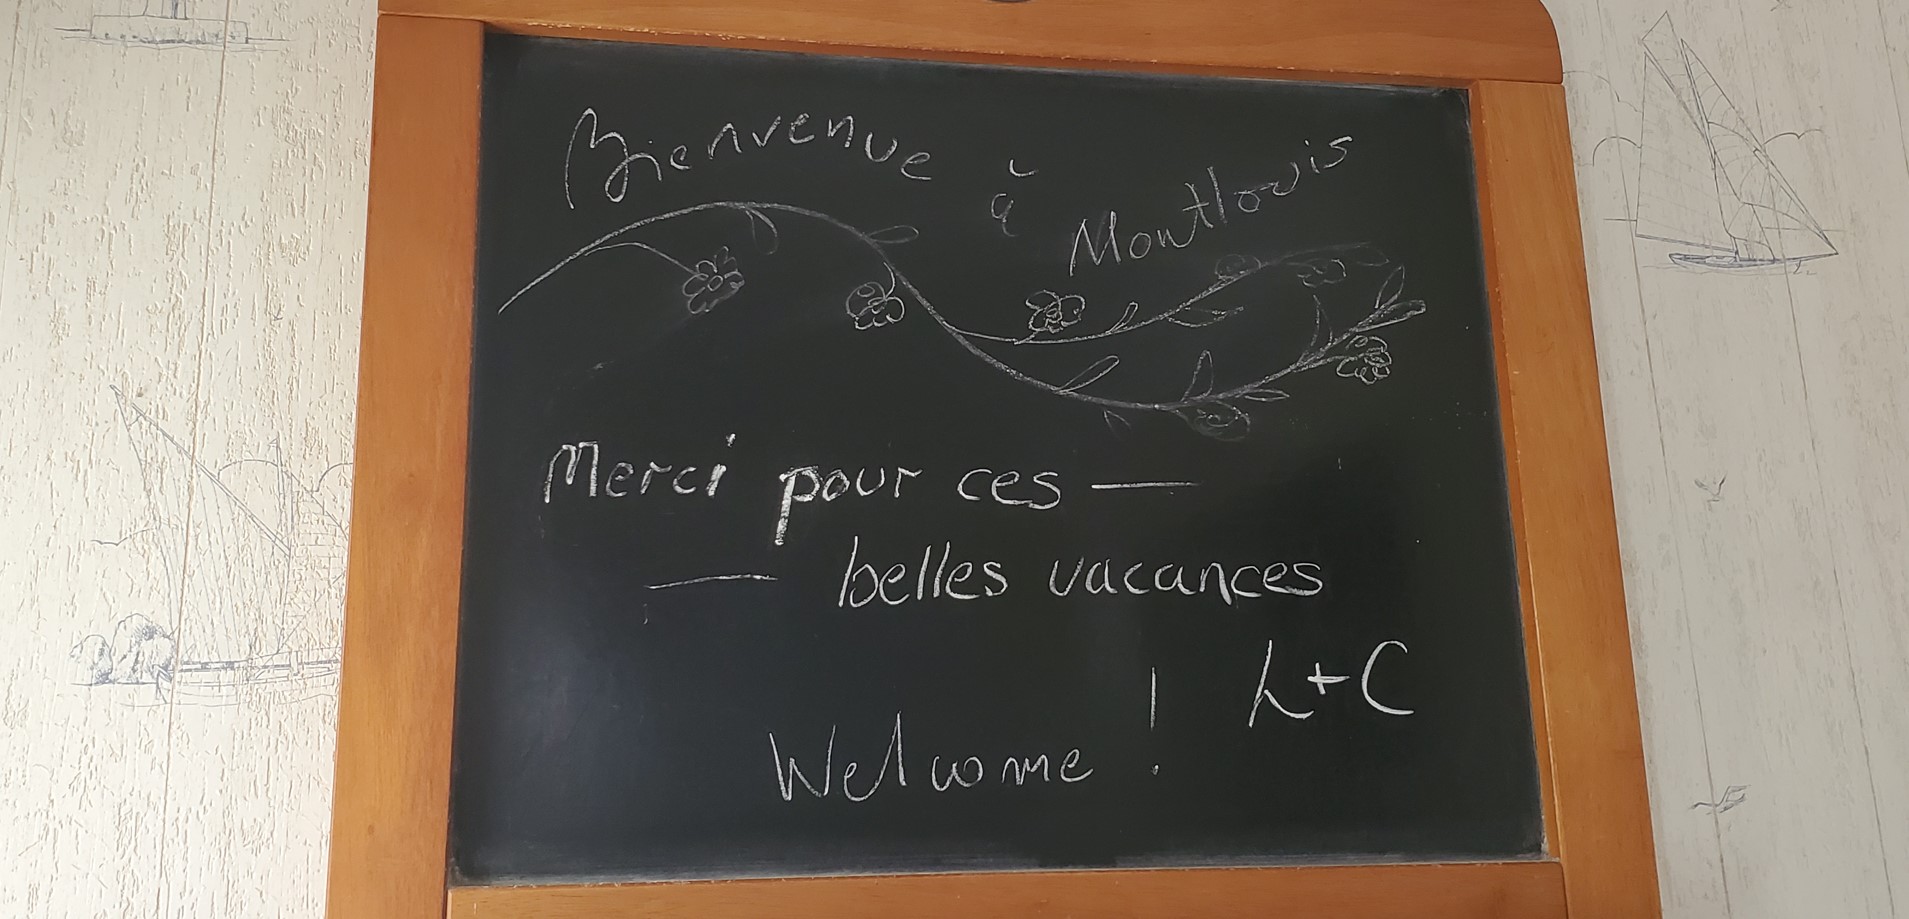 Bienvenue à Montlouis
Merci pour ces —
— belles vacances
L+C
Welcome !